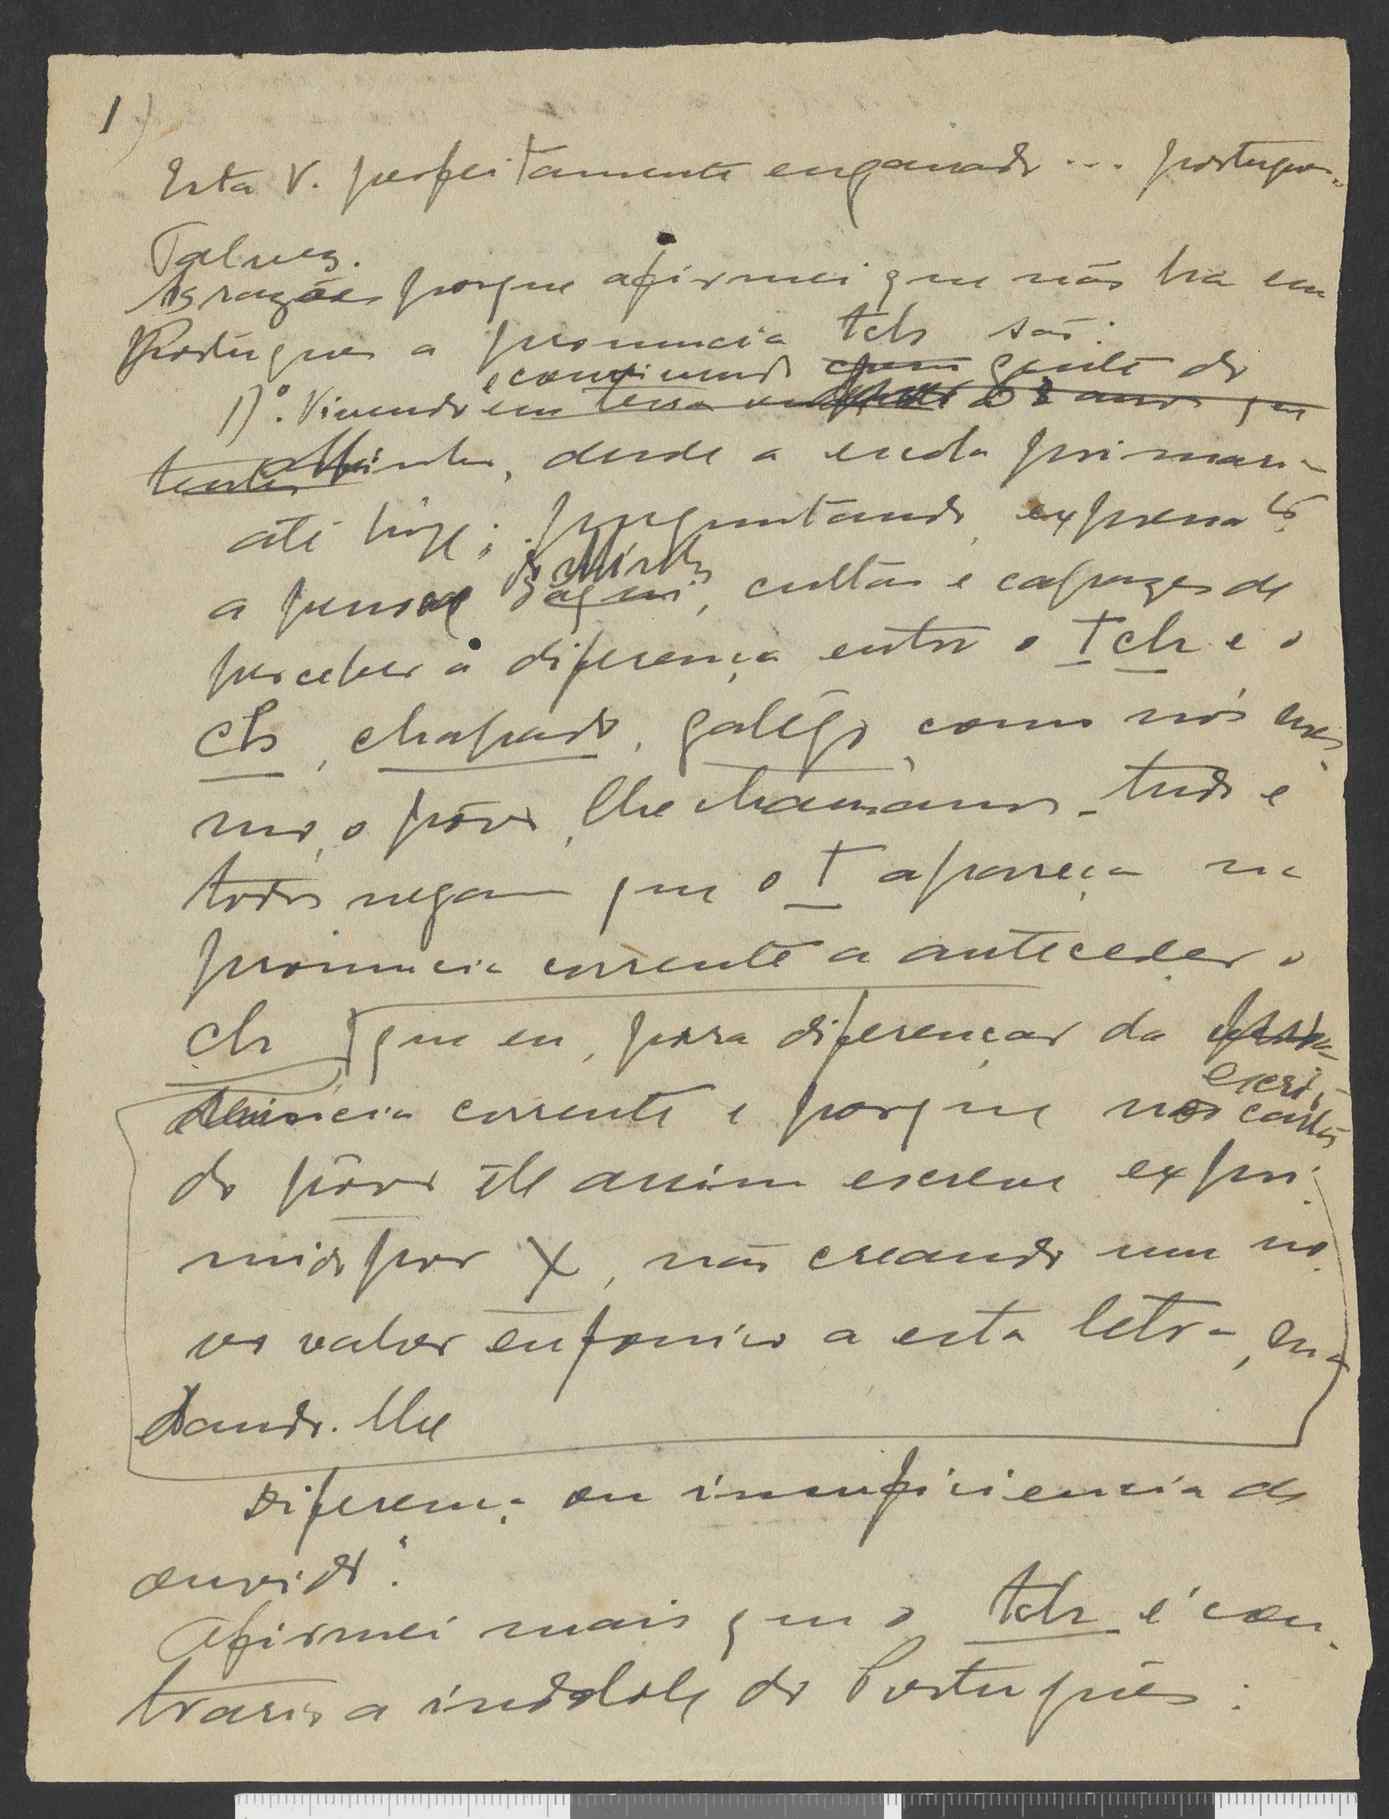 1)
Esta V. perfeitamente enganado ... portugues.
Talvez.
As razões porque afirmei que não ha em
Portugues a pronuncia tch são:
e convivendo com gente do
1)º. Vivendo em terra 28 anos que
tenho Minho, desde a escola primaria
até hoje; preguntando, expressa/te
do Minho
a pessoas daqui, cultas e capazes de
perceber a diferença entre o tch e o
ch, chapado, galêgo, como nós mes-
mo, o pôvo, lhe chamamos - tudo e
todos negam que o t apareça na
pronuncia corrente a anteceder o
ch que eu, para diferençar da
escri-
corrente e porque nos cantos
do pôvo êle assim escreve expri-
mido por X, não creando um no-
vo valor eufonico a esta letra, mas
dando-lhe
Diferença ou insuficiencia de
ouvido?
Afirmei mais que o tch é con-
trario a indole do Português: